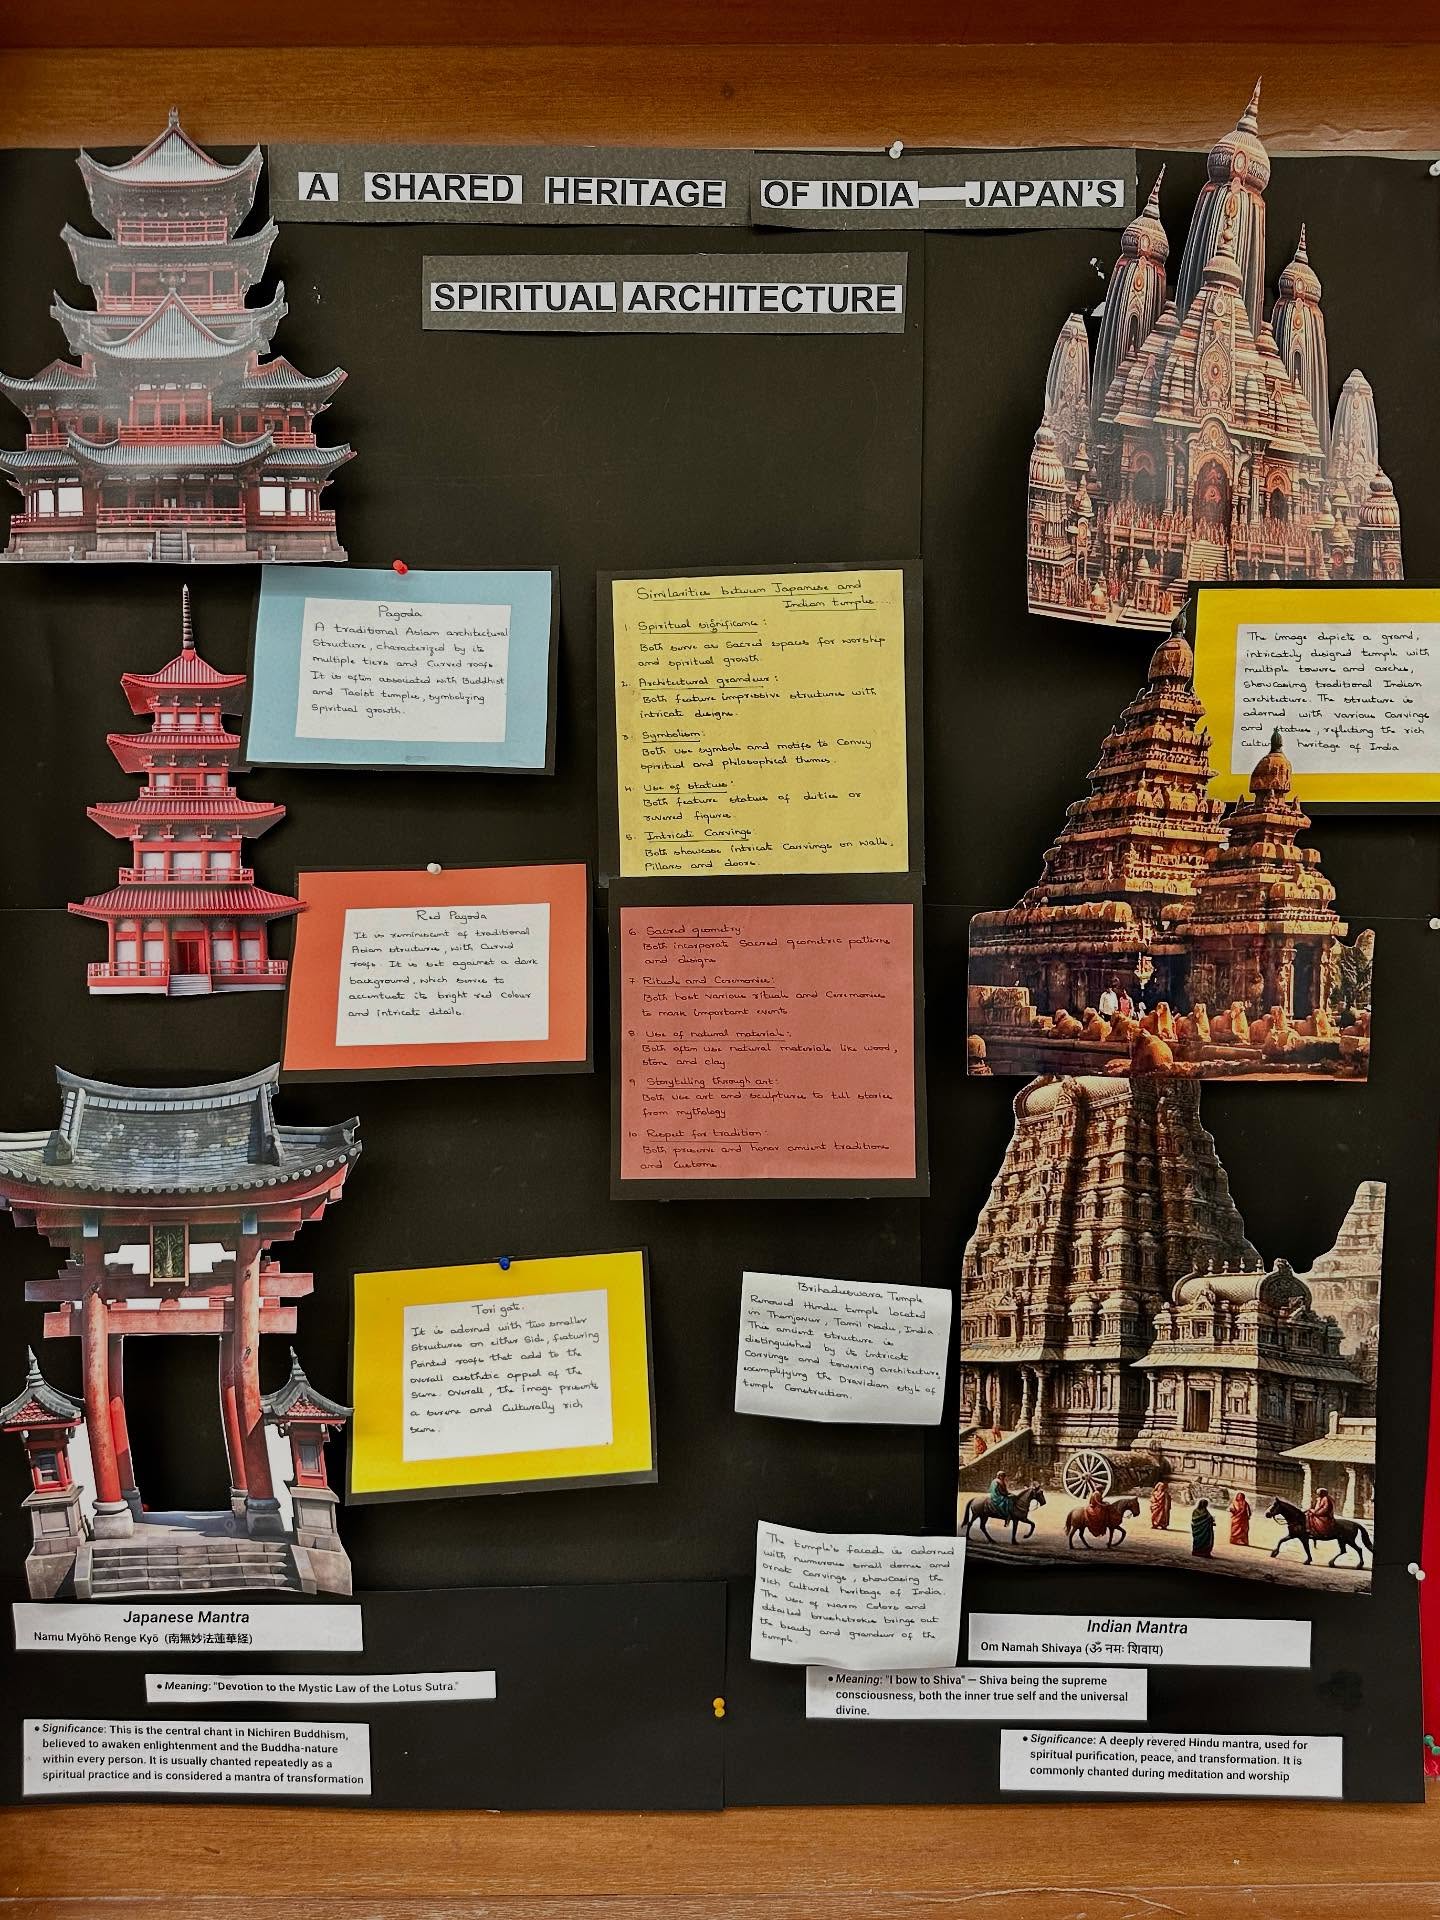 A SHARED HERITAGE OF INDIA—JAPAN'S
SPIRITUAL ARCHITECTURE
Pagoda
A traditional Asian architectural
Structure, characterized by its
multiple tiers and Curved roofs.
It is often associated with Buddhist
and Taoist temples, symbolizing
Spiritual growth.
Red Pagoda
It is reminiscent of traditional
Asian structures, with Curved
roofs. It is set against a dark
background, which serves to
accentuate its bright red Colour
and intricate details.
Tori gate.
It is adorned with two smaller
Structures on either Side, featuring
Pointed roofs that add to the
overall aesthetic appeal of the
Scene. Overall, the image presents
a serene and Culturally rich
Scene.
Similarities between Japanese and
Indian temples....
1. Spiritual significance:
Both serve as Sacred spaces for worship
and spiritual growth.
2. Architectural grandeur:
Both feature impressive structures with
intricate designs.
3. Symbolism:
Both use symbols and motifs to Convey
spiritual and philosophical themes.
4. Use of statues:
Both feature statues of deities or
revered figures.
5. Intricate Carvings:
Both showcase intricate Carvings on walls,
Pillars and doors.
6. Sacred geometry:
Both incorporate Sacred geometric patterns
and designs
7. Rituals and Ceremonies:
Both host various rituals and Ceremonies
to mark important events
8. Use of natural materials:
Both often use natural materials like wood,
stone and clay
9. Storytelling through art:
Both use art and sculptures to tell stories
from mythology
10. Respect for tradition:
Both preserve and honor ancient traditions
and Customs
The image depicts a grand,
intricately designed temple with
multiple towers and arches,
Showcasing traditional Indian
architecture. The structure is
adorned with various Carvings
and statues, reflecting the rich
cultural heritage of India
Brihadeeswara Temple
Renowed Hindu temple located
in Thanjavur, Tamil Nadu, India
This ancient structure is
distinguished by its intricate
Carvings and towering architecture,
exemplifying the Dravidian style of
temple Construction.
The temple's facade is adorned
with numerous small domes and
ornate Carvings, showcasing the
rich Cultural heritage of India.
The use of warm Colors and
detailed brushstrokes brings out
the beauty and grandeur of the
temple.
Japanese Mantra
Namu Myōhō Renge Kyō (南無妙法蓮華経)
• Meaning: "Devotion to the Mystic Law of the Lotus Sutra."
• Significance: This is the central chant in Nichiren Buddhism,
believed to awaken enlightenment and the Buddha-nature
within every person. It is usually chanted repeatedly as a
spiritual practice and is considered a mantra of transformation
Indian Mantra
Om Namah Shivaya (ॐ नमः शिवाय)
• Meaning: "I bow to Shiva" — Shiva being the supreme
consciousness, both the inner true self and the universal
divine.
• Significance: A deeply revered Hindu mantra, used for
spiritual purification, peace, and transformation. It is
commonly chanted during meditation and worship